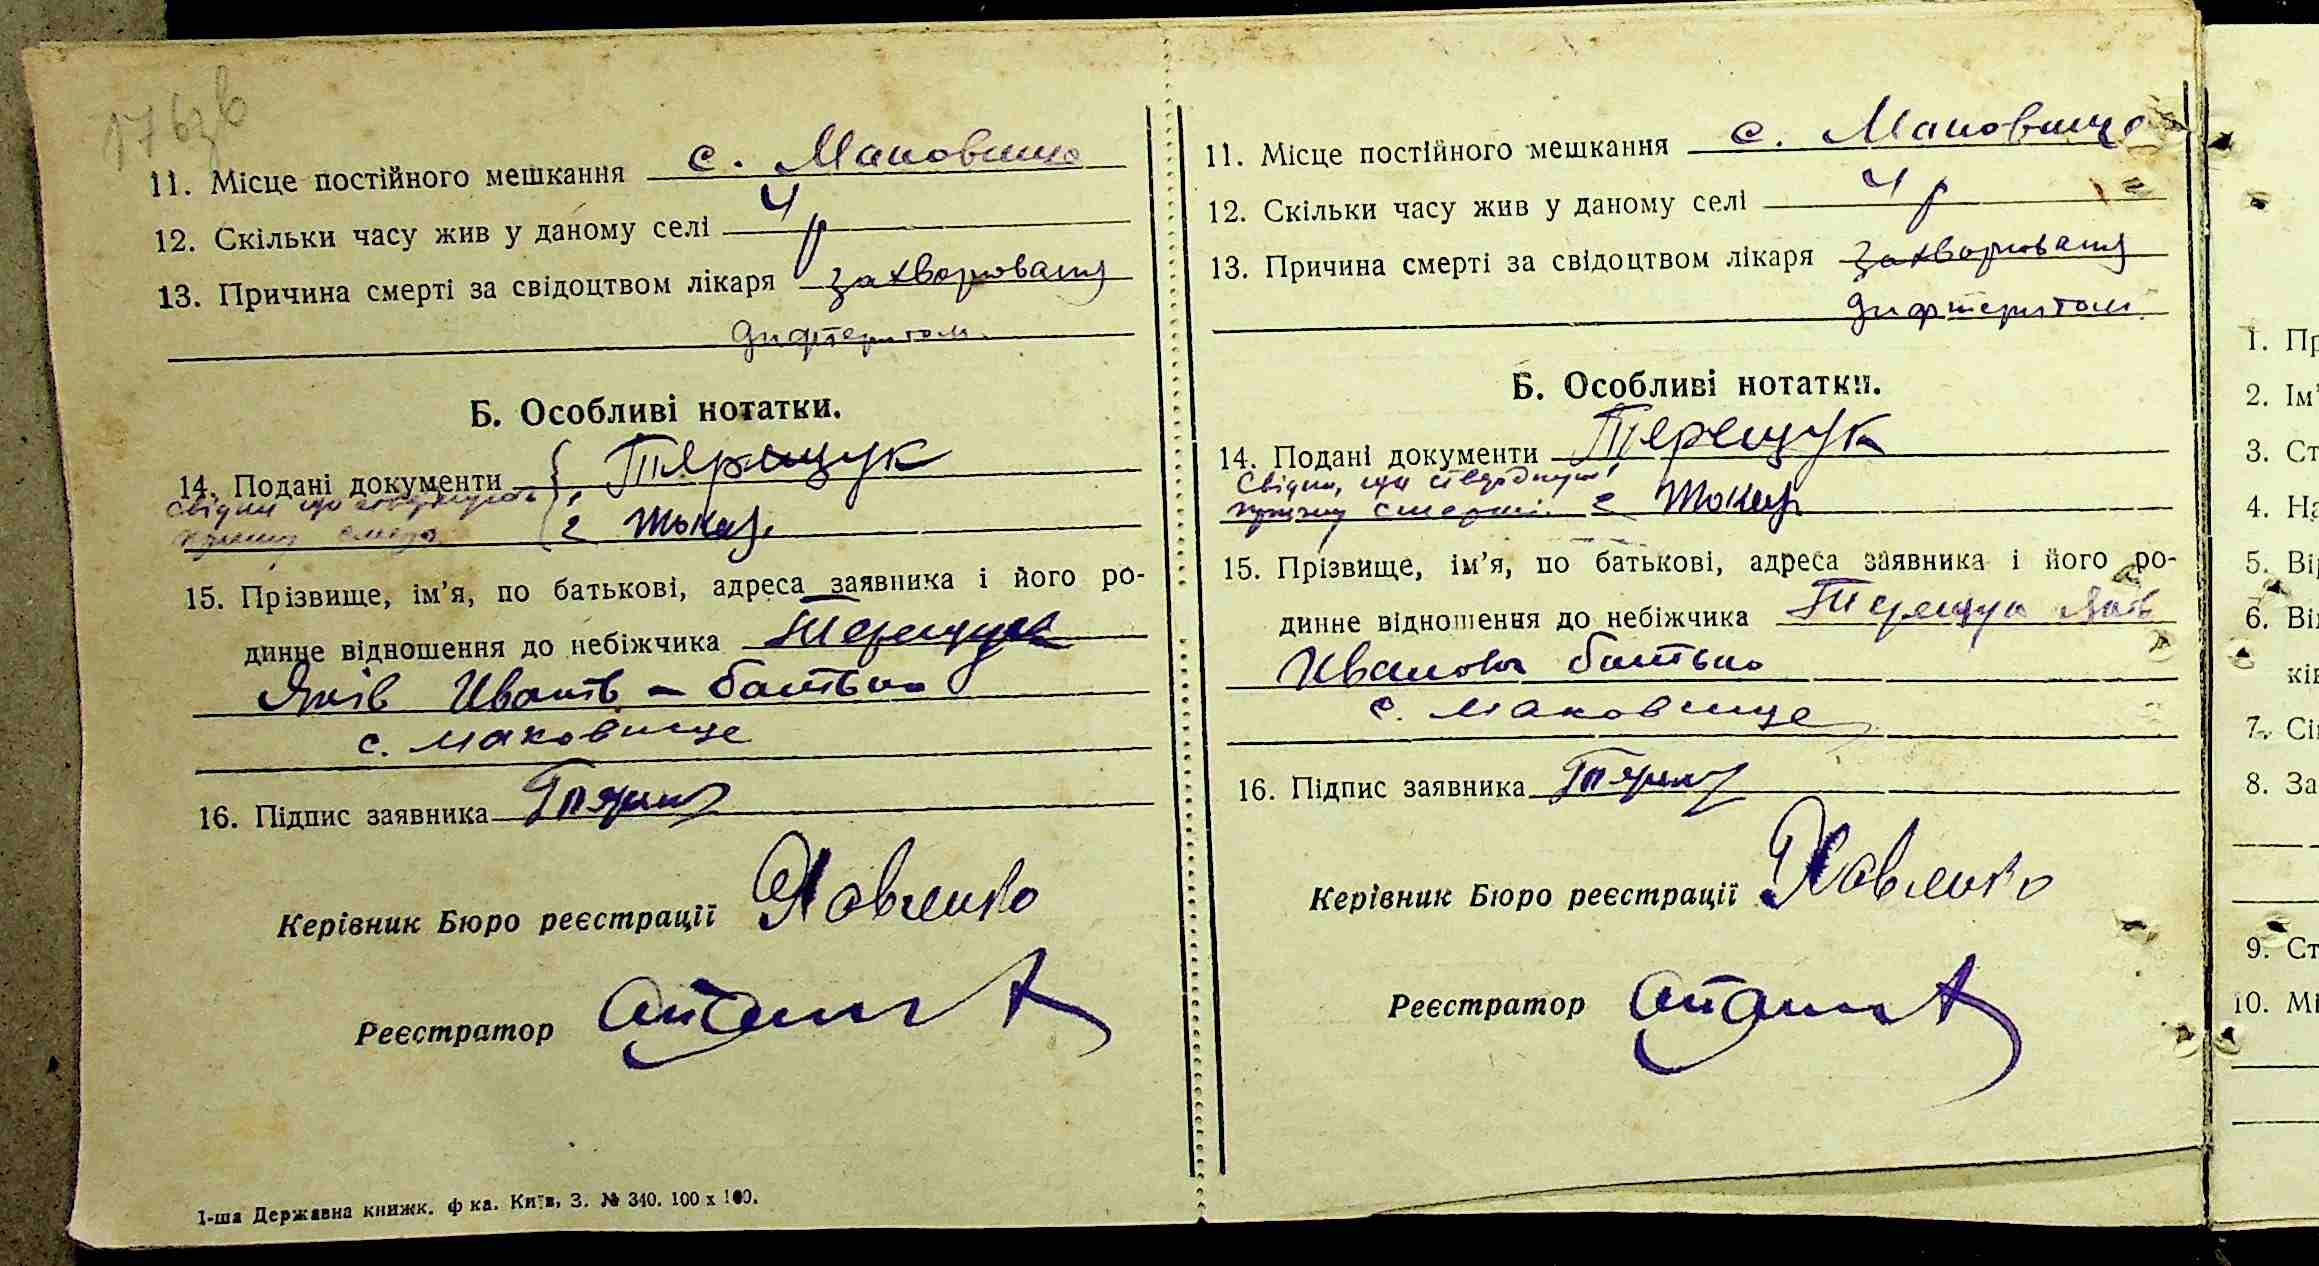 176зв
11. Місце постійного мешкання с. Маковище
12. Скільки часу жив у даному селі 4 р
13. Причина смерті за свідоцтвом лікаря захворювання
дифтеритом.
Б. Особливі нотатки.
14. Подані документи { 1 Терещук
Свідки що стверджують
причину смерті { 2 Токар.
15. Прізвище, ім'я, по батькові, адреса заявника і його ро-
динне відношення до небіжчика Терещук
Яків Иванів - батько
с. Маковище
16. Підпис заявника
Керівник Бюро реєстрації Яковленко
Реєстратор
1-ша Державна книжк. ф ка. Київ, З. № 340. 100 x 100.
11. Місце постійного мешкання с. Маковище
12. Скільки часу жив у даному селі 4 р
13. Причина смерті за свідоцтвом лікаря захворювання
дифтеритом.
Б. Особливі нотатки.
14. Подані документи Терещук
Свідки, що стверджують
причину смерті. 2 Токар
15. Прізвище, ім'я, по батькові, адреса заявника і його ро-
динне відношення до небіжчика Терещук Яків
Иванов батько
с. Маковище
16. Підпис заявника
Керівник Бюро реєстрації Яковленко
Реєстратор
1. Пр
2. Ім'
3. Ст
4. На
5. Ві
6. Ві
кі
7. Сі
8. За
9. Ст
10. Мі